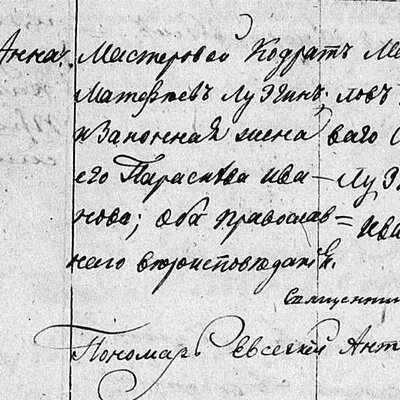 Анна. Мастеровой Кодратъ Ма
Матфѣевъ Лузгинъ ловъ
и Законная жена ваго
его Параскева Ива– Луз
нова; оба православ= Ива
наго вѣроисповѣданія.
Священни
Пономарь Евсевий Ант